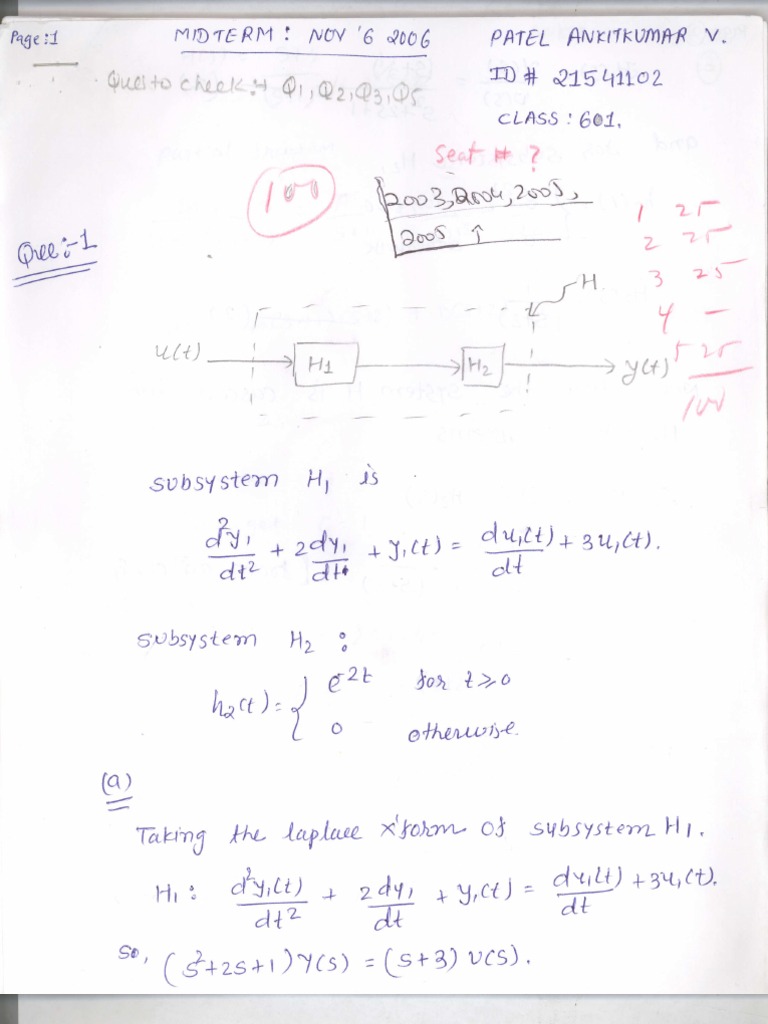 Page:1 MIDTERM: NOV '6 2006 PATEL ANKITKUMAR V.
ID # 21541102
Ques to check:→ Q1, Q2, Q3, Q5
CLASS: 601.
Seat # ?
100
2003, 2004, 2005,
2005 ↑
1 25
2 25
3 25
4 –
5 25
100
Que:-1
H
u(t) H1 H2 y(t)
subsystem H1 is
d²y1/dt² + 2dy1/dt + y1(t) = du1(t)/dt + 3u1(t).
subsystem H2 :
h2(t) = { e^-2t for t ≥ 0
0 otherwise.
(a)
Taking the laplace x'form of subsystem H1.
H1: d²y1(t)/dt² + 2dy1/dt + y1(t) = du1(t)/dt + 3u1(t).
So, (s²+2s+1) Y(s) = (s+3) U(s).